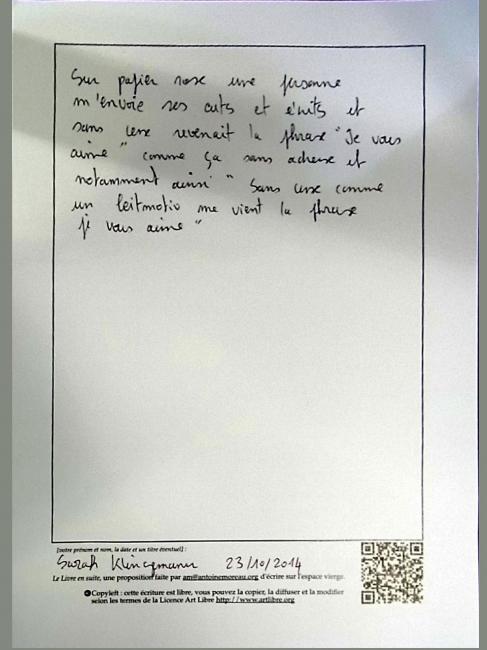 Sur papier rose une personne
m'envoie ses cuts et écrits et
sans cesse revenait la phrase "Je vous
aime" comme ça sans adresse et
notamment ainsi " Sans cesse comme
un leitmotiv me vient la phrase
je vous aime "
[votre prénom et nom, la date et un titre éventuel] :
Sarah Klingemann 23/10/2014
Le Livre en suite, une proposition faite par am@antoinemoreau.org d'écrire sur l'espace vierge.
Copyleft : cette écriture est libre, vous pouvez la copier, la diffuser et la modifier
selon les termes de la Licence Art Libre http://www.artlibre.org